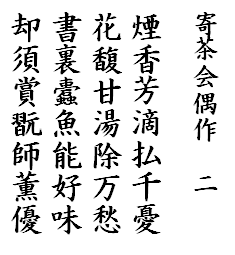 寄茶会偶作　二
煙香芳滴払千憂
花馥甘湯除万愁
書裏蠹魚能好味
却須賞翫師薫優